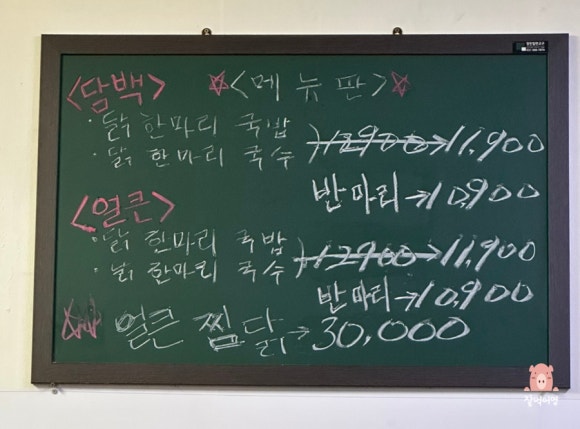 <메뉴판>
<담백>
· 닭 한마리 국밥
· 닭 한마리 국수
) 12900 → 11,900
반마리 → 10,900
<얼큰>
· 닭 한마리 국밥
· 닭 한마리 국수
) 12900 → 11,900
반마리 → 10,900
얼큰 찜닭 → 30,000